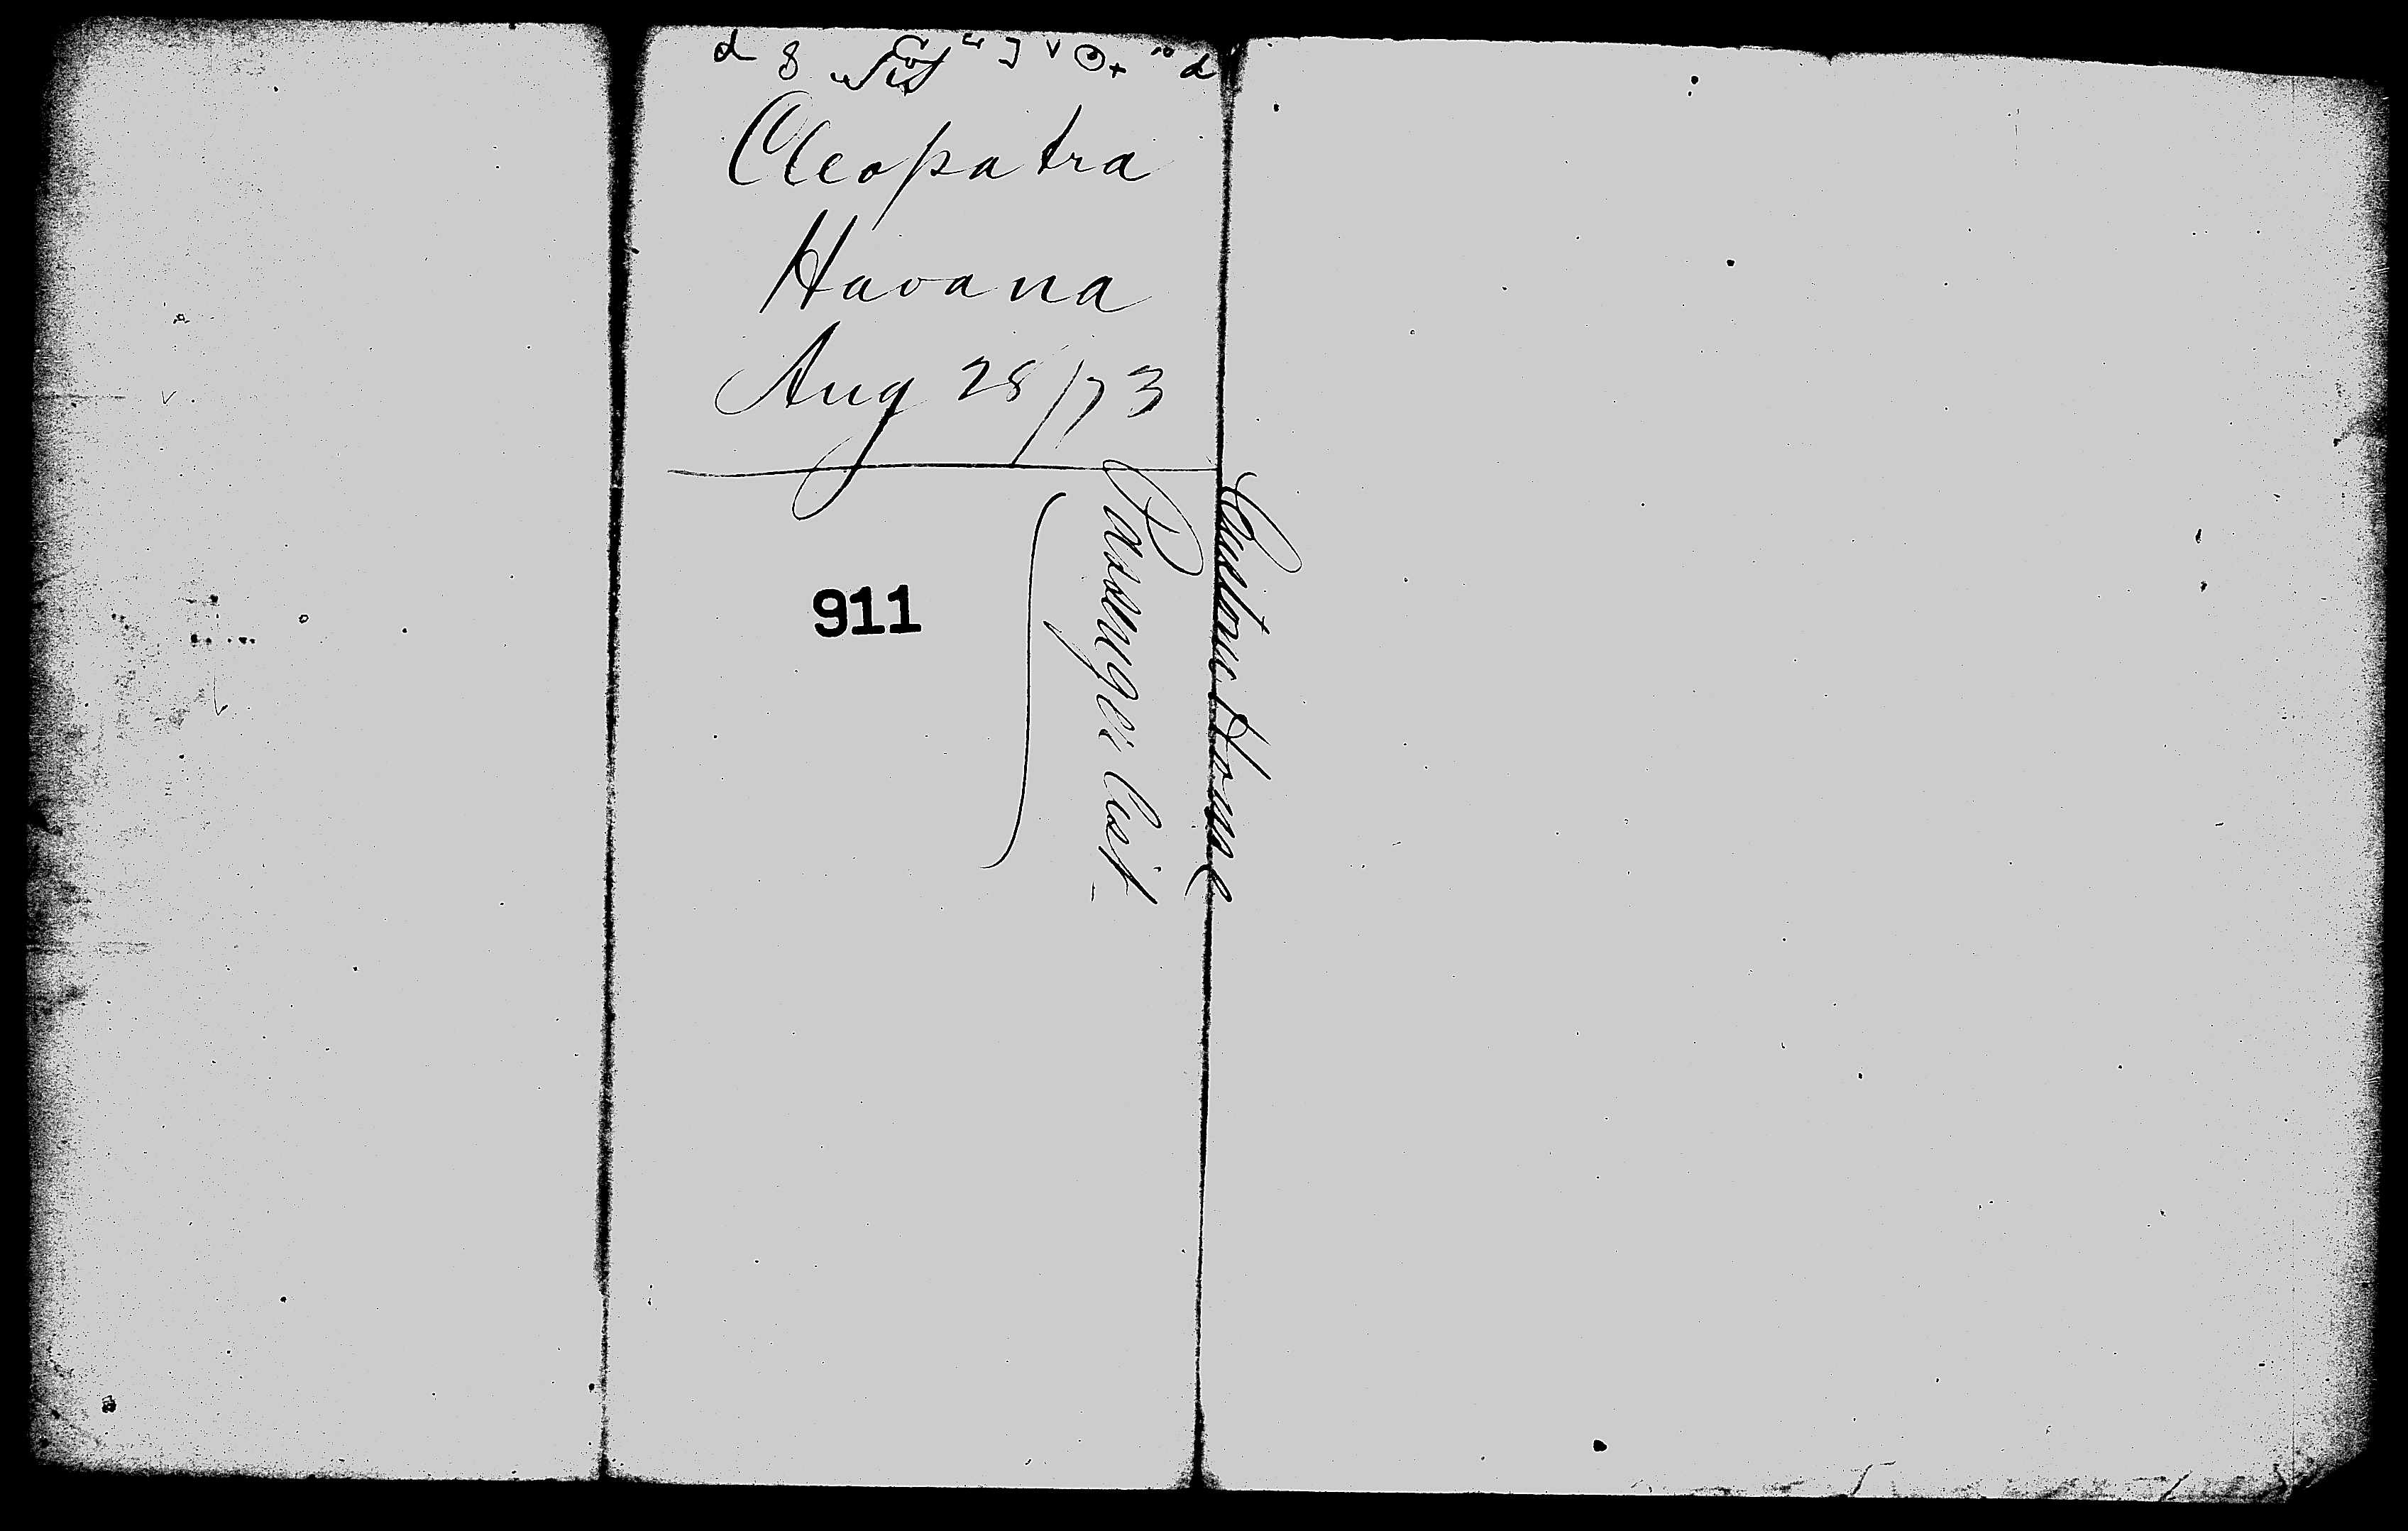 Cleopatra
Havana
Aug 28/73
911
Custom House
Passenger List